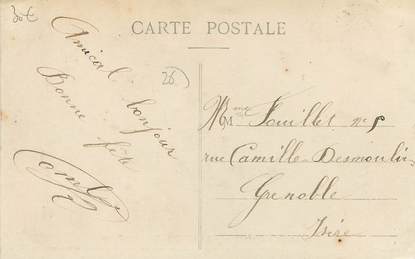 30€
CARTE POSTALE
26
Amical bonjour
Bonne fête
Mme Fouilles n° 5
rue Camille-Desmoulins
Grenoble
Isère